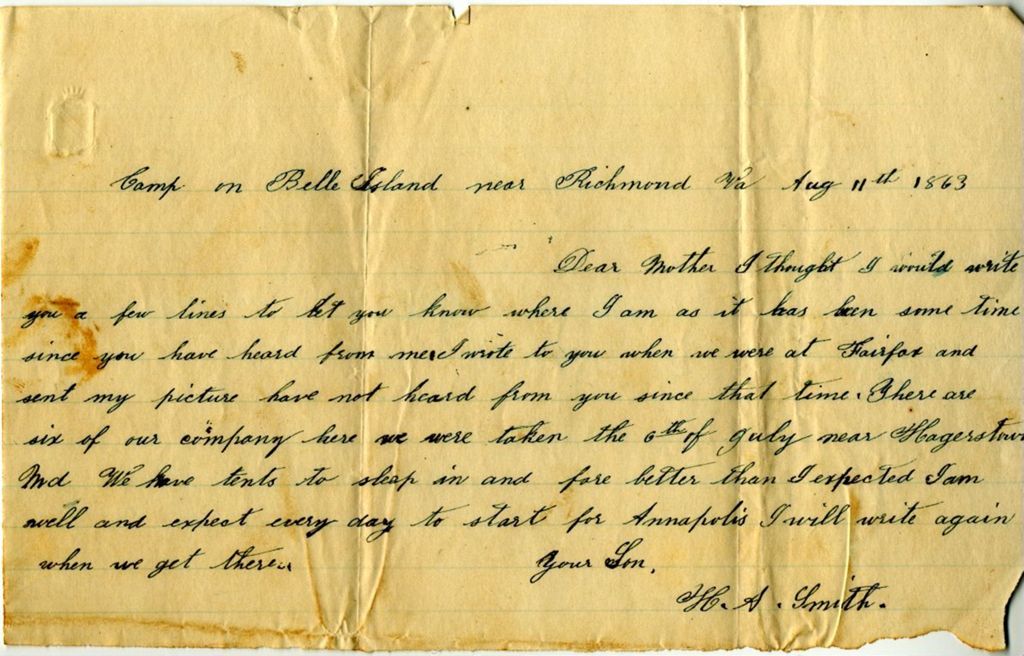 Camp on Belle Island near Richmond Va Aug 11th 1863
Dear Mother I thought I would write
you a few lines to let you know where I am as it has been some time
since you have heard from me. I wrote to you when we were at Fairfax and
sent my picture have not heard from you since that time. There are
six of our company here we were taken the 6th of July near Hagerstown
Md We have tents to sleap in and fare better than I expected I am
well and expect every day to start for Annapolis I will write again
when we get there.. Your Son,
H. A. Smith.